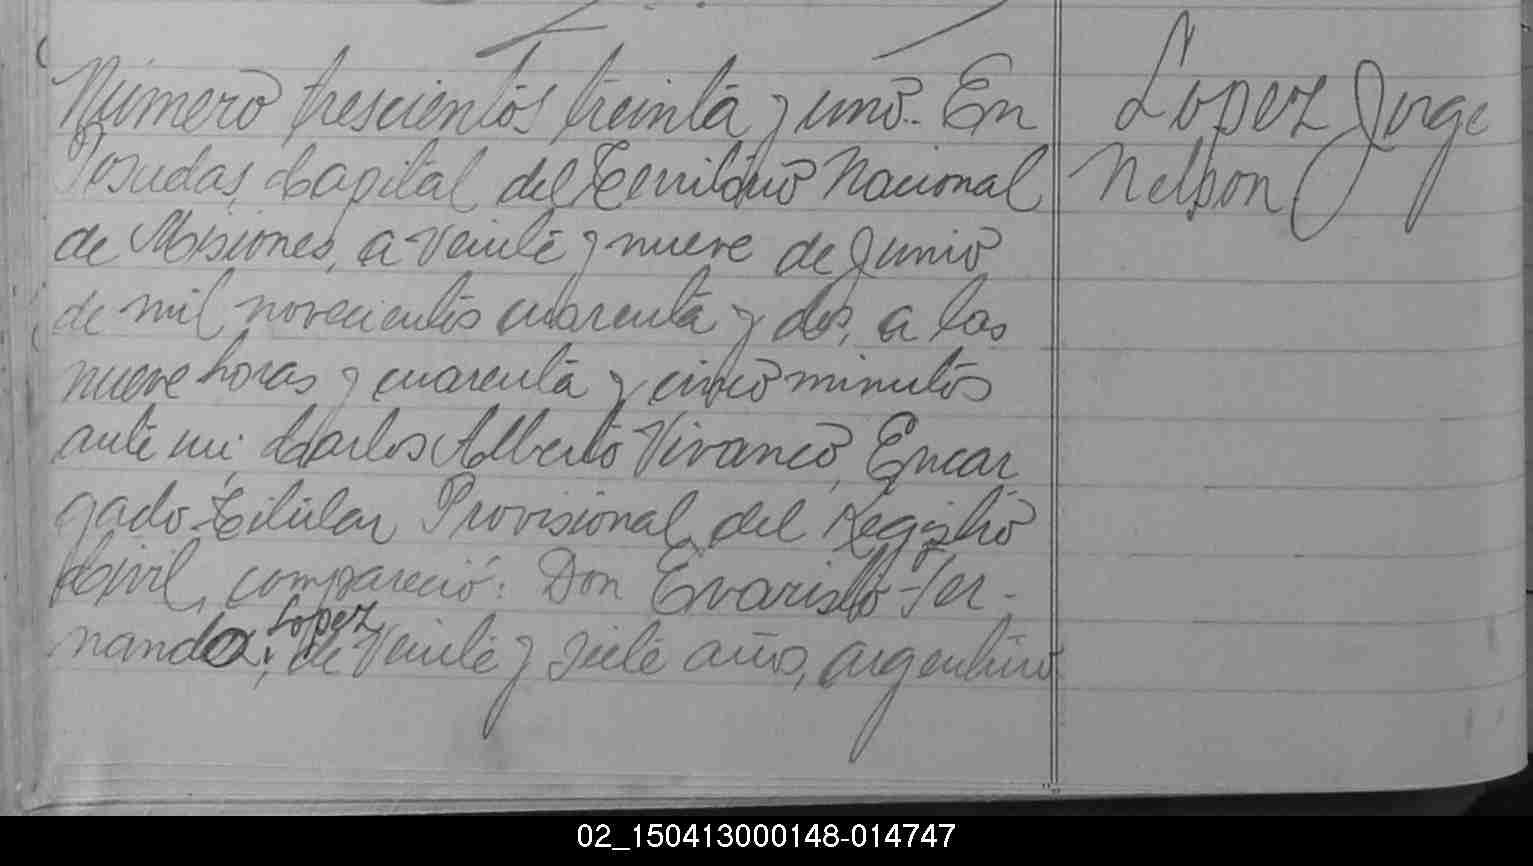 Número trescientos treinta y uno. En
Posadas, Capital del Territorio Nacional
de Misiones, a veinte y nueve de Junio
de mil novecientos cuarenta y dos, a las
nueve horas y cuarenta y cinco minutos
ante mi: Carlos Alberto Vivanco, Encar
gado Titular Provisional del Registro
Civil, compareció: Don Evaristo Fer-
nando, Lopez de veinte y siete años, argentino
Lopez Jorge
Nelson
02_150413000148-014747